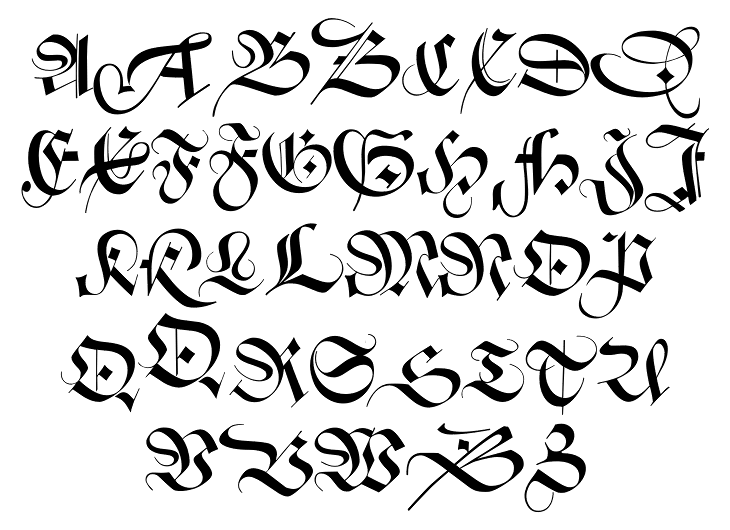 A A B B C C D D
E E F F G G H H I J
K K L L M N O P
Q Q R S S T T U
V V W X Z